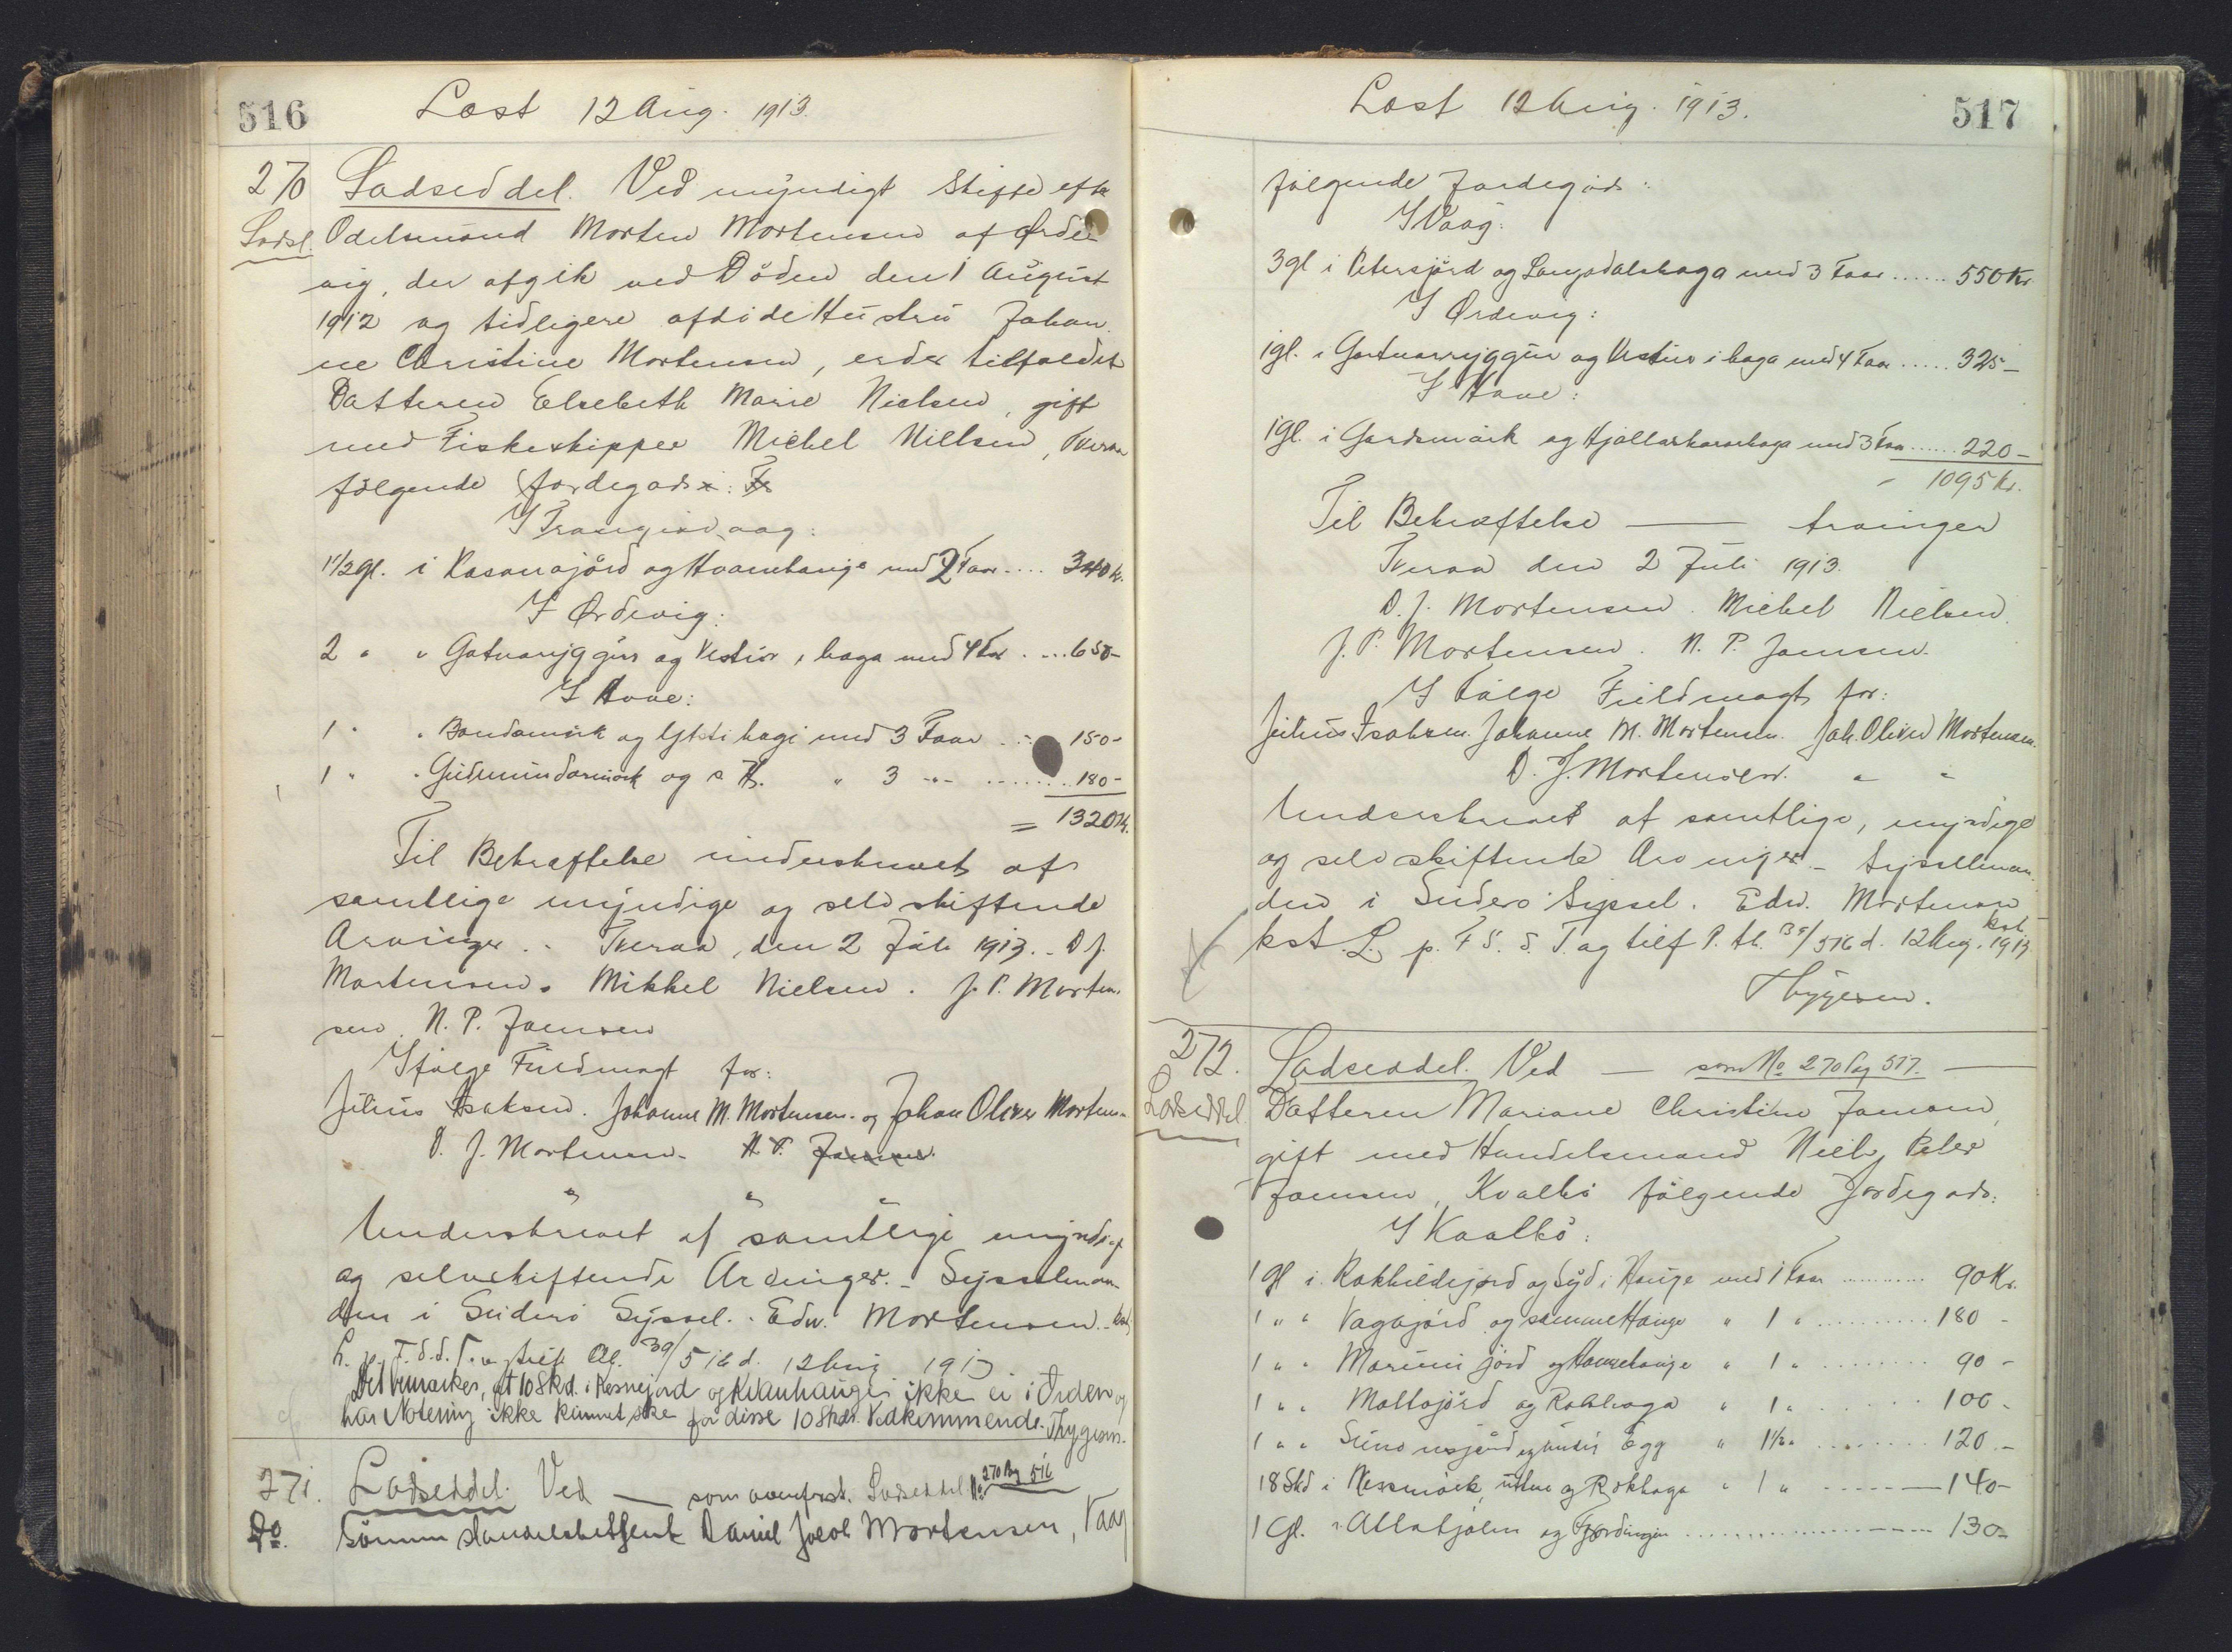 516
Læst 12 Aug. 1913.
270 Lodseddel. Ved myndigt Skifte efter
Lodsl. Odelsmand Morten Mortensen af Ørde-
vig, der afgik ved Döden den 1 August
1912 og tidligere afdöde Hustru Johan
ne Christine Mortensen, er der tilfaldet
Datteren Elsebeth Marie Nielsen, gift
med Fiskeskipper Michel Nielsen, Tveraa
fölgende Jordegods:
I Trangisvaag:
1 1/2 gl. i og med 2 Faar .... 340 Kr.
I Ørdevig:
2 " " Gatnaryggur og Vestur i haga med 4 Faar .... 650-
I Hove:
1 " " Bondamörk og hagi med 3 Faar ... 150-
1 " " Gudmundarmörk og s. H. " 3 -"- ....... 180-
= 1320 Kr.
Til Bekræftelse underskrevet af
samtlige myndige og selvskiftende
Arvinger. - Tveraa, den 2 Juli 1913. - D. J.
Mortensen. Mikkel Nielsen. J. P. Morten
sen. N. P. Joensen
Ifölge Fuldmagt for:
Julius Isaksen. Johanne M. Mortensen. og Johan Oliver Mortensen
D. J. Mortensen. N. P. Joensen.
" " "
Underskrevet af samtlige myndige
og selvskiftende Arvinger. - Sysselman
den i Suderö Syssel. Edw. Mortensen. - kst.
12 Aug 1913
Det bemærkes, at 10 Skd. i og ikke er i Orden og
har Notering ikke kunnet ske for disse 10 Skds. Vedkommende. Thygesen.
271. Lodseddel. Ved — som ovenfrst. Lodseddel No 270 Pag 516
Do. Sönnen Handelsbetjent Daniel Jacob Mortensen, Vaag
Læst 12 Aug. 1913.
517
fölgende Jordegods:
I Vaag:
3 gl i Petersjörd og Langadalshaga med 3 Faar ...... 550 Kr
I Ørdevig:
1 gl. i Gatnaryggur og Vestur i haga med 4 Faar ..... 325-
I Hove:
1 gl. i Gardsmörk og med 3 Faar ...... 220-
1095 Kr.
Til Bekræftelse — Arvinger
Tveraa den 2 Juli 1913.
D. J. Mortensen. Michel Nielsen.
J. P. Mortensen. N. P. Joensen.
I Fölge Fuldmagt for:
Julius Isaksen. Johanne M. Mortensen. Joh. Oliver Mortensen.
D. J. Mortensen. " "
Underskrevet af samtlige, myndige
og selvskiftende Arvinger. - Sysselman
den i Suderö Syssel. Edw. Mortensen
kst.
kst. L. p. F. S. S. T. og tilf P. tl. 516 d. 12 Aug. 1913
Thygesen.
272. Lodseddel. Ved — som No 270 Pag 517. —
Lodseddel. Datteren Mariane Christine Joensen,
gift med Handelsmand Niels Peter
Joensen, Kvalbö fölgende Jordegods:
I Kvalbö:
1 gl i Rakhildsjord og Syd i Hauge med 1 Faar ........... 90 Kr.
1 " " Vagajörd og samme Hauge " 1 " ......... 180 -
1 " " jörd og samme hauge " 1 " ........ 90 -
1 " " Mallajörd og Rokhaga " 1 " ...... 100 -
1 " " og undir Egg " 1 1/2 " ........ 120.-
18 Skd i Nesmörk, uttan og Rokhaga " 1 " ------ 140-
1 Gl. " og .......... 130-